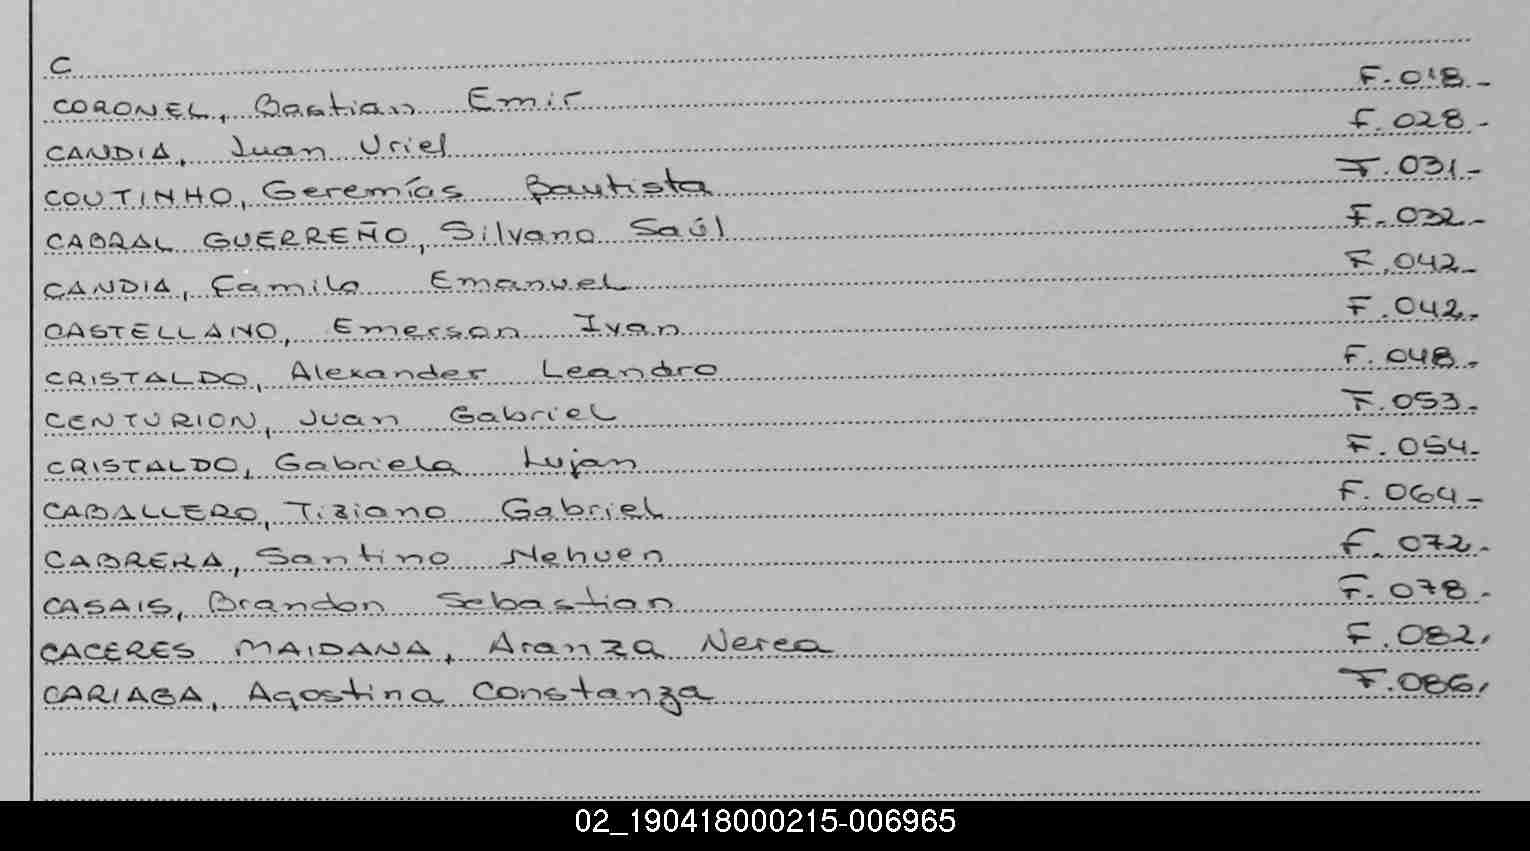 C
CORONEL, Bastian Emir F. 018-
CANDIA, Juan Uriel F. 028-
COUTINHO, Geremías Bautista F. 031-
CABRAL GUERREÑO, Silvano Saúl F. 032-
CANDIA, Camila Emanuel F. 042-
CASTELLANO, Emerson Ivan F. 042-
CRISTALDO, Alexander Leandro F. 048-
CENTURION, Juan Gabriel F. 053-
CRISTALDO, Gabriela Lujan F. 054-
CABALLERO, Tiziano Gabriel F. 064-
CABRERA, Santino Nehuen F. 072-
CASAIS, Brandon Sebastian F. 078-
CACERES MAIDANA, Aranza Nerea F. 082,
CARIAGA, Agostina Constanza F. 086,
02_190418000215-006965